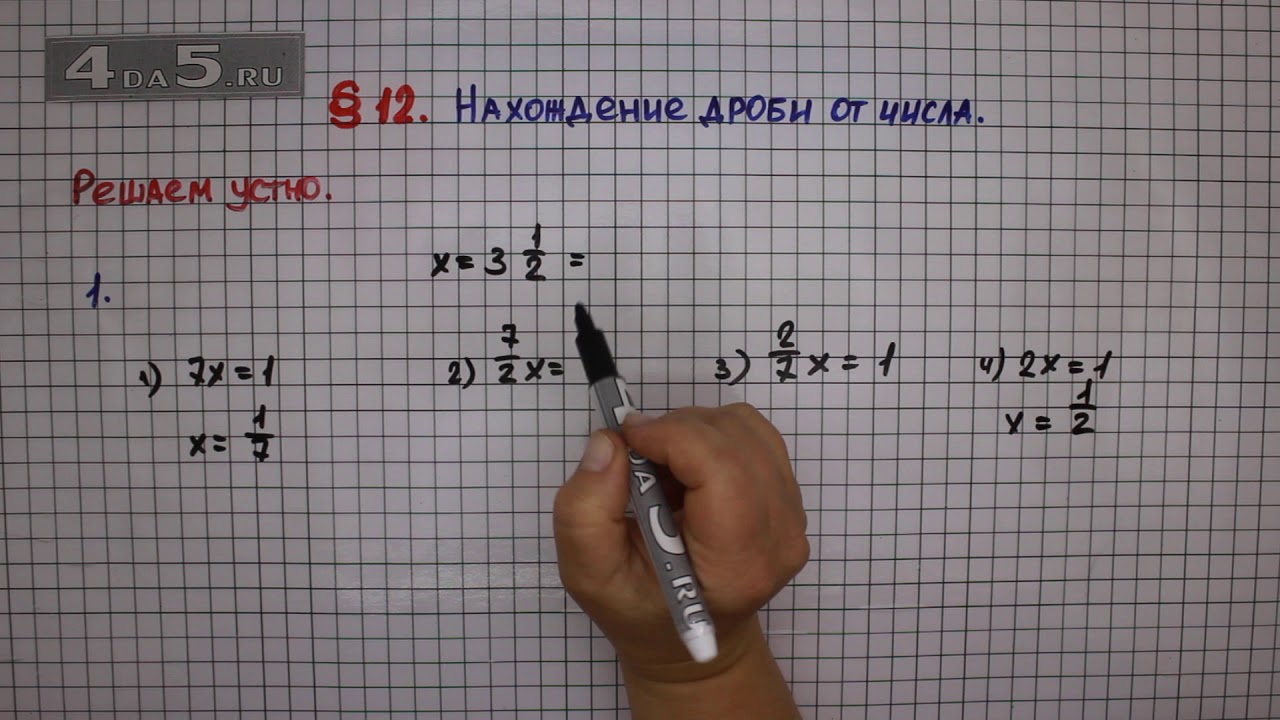 4DA5.RU
§ 12. Нахождение дроби от числа.
Решаем устно.
x = 3 1/2 =
1.
1) 7x = 1
x = 1/7
2) 7/2 x =
3) 2/7 x = 1
4) 2x = 1
x = 1/2
DA 5.RU